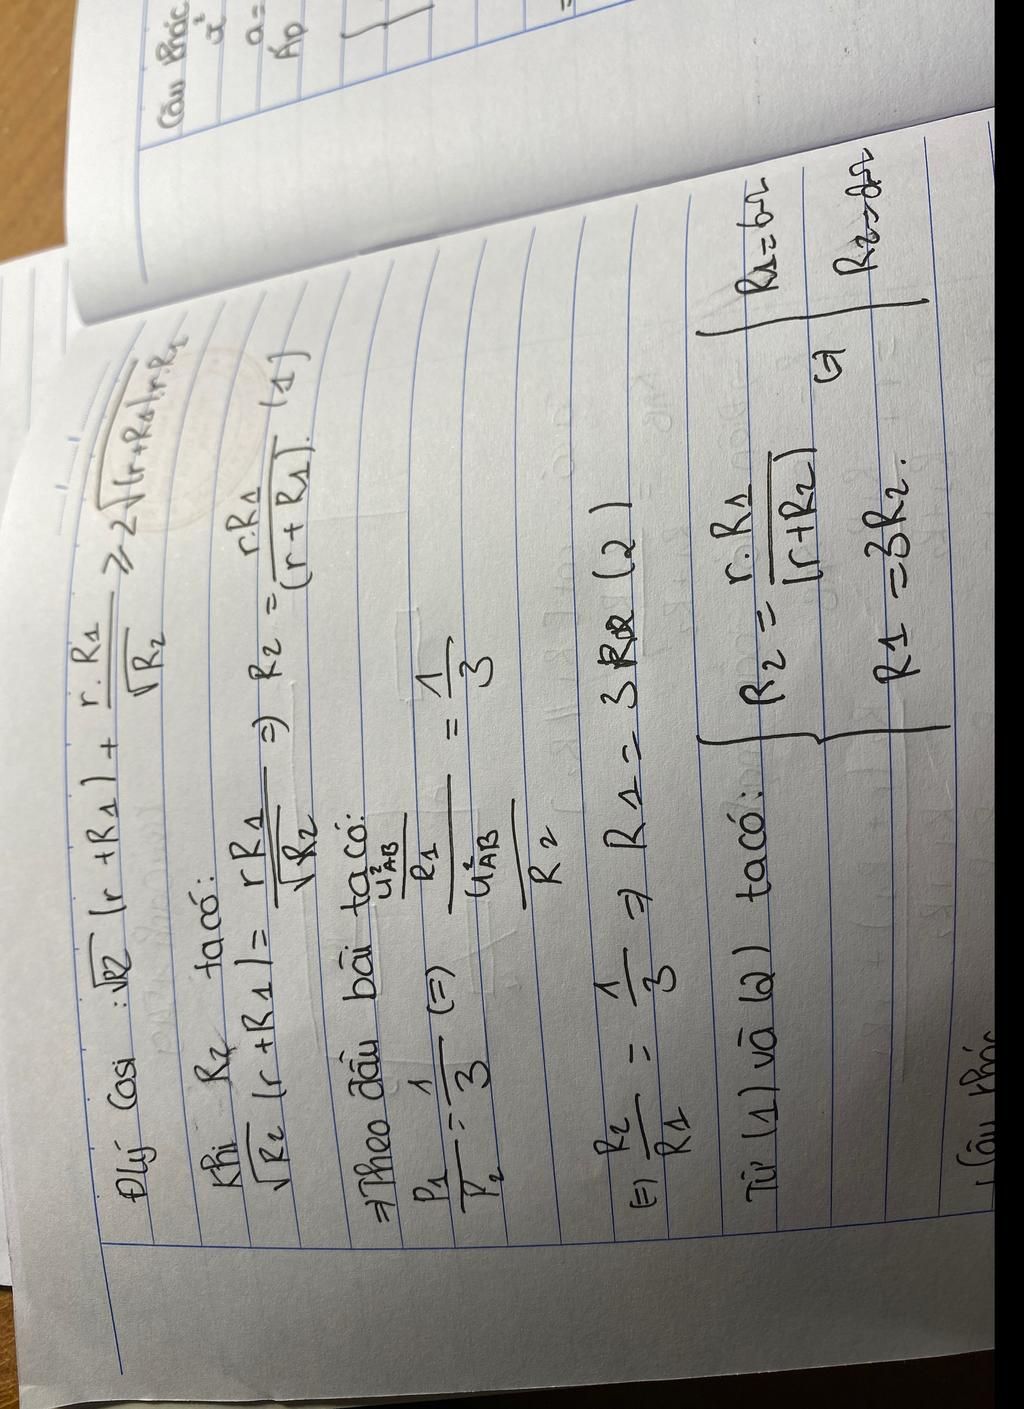 Đlý Cosi : √R2 (r + R1) + r.R1/√R2 ≥ 2√(r+R1).r.R1
Khi R2 ta có:
√R2 (r + R1) = rR1/√R2 => R2 = r.R1/(r + R1). (1)
=> Theo đầu bài ta có:
P1/P2 = 1/3 (=) U²AB/R1 / U²AB/R2 = 1/3
(=) R2/R1 = 1/3 => R1 = 3R2 (2)
Từ (1) và (2) ta có: { R2 = r.R1/(r+R2)
R1 = 3R2.
(=) { R1 = 6Ω
R2 = 2Ω
Câu khác
a =
Áp